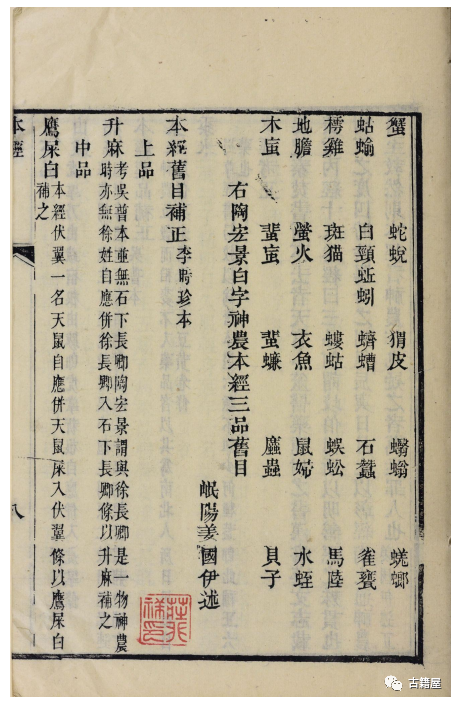 蟹 蛇蛻 猬皮 蠮螉 蜣蜋
蛞蝓 白頸蚯蚓 蠐螬 石蠶 雀甕
樗雞 斑猫 螻蛄 蜈蚣 馬陸
地膽 螢火 衣魚 鼠婦 水蛭
木䖟 蜚䖟 蜚蠊 䗪蟲 貝子
右陶宏景白字神農本經三品舊目
岷陽姜國伊述
本經舊目補正 李時珍本
上品
升麻 考吳普本並無石下長卿陶宏景謂與徐長卿是一物神農
時亦無徐姓自應併徐長卿入石下長卿條以升麻補之
中品
鷹屎白 本經伏翼一名天鼠自應併天鼠屎入伏翼條以鷹屎白
補之
本經 八
古籍屋